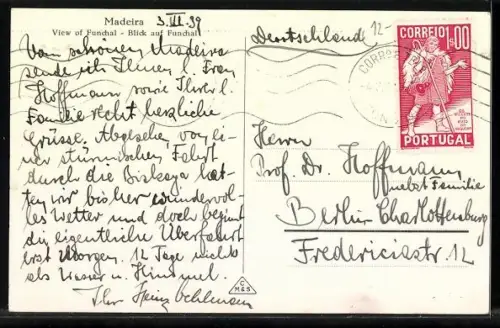 Madeira 3.VII.39
View of Funchal - Blick auf Funchal
Vom schönen Madeira
sende ich Ihnen l. Frau
Hoffmann sowie Ihrer l.
Familie recht herzliche
Grüsse. Abgesehen von ei-
ner stürmischen Fahrt
durch die Biskaya hat-
ten wir bisher wundervol-
les Wetter und doch beginnt
die eigentliche Überfahrt
erst Morgen. 12 Tage nichts
als Wasser u. Himmel.
Ihr Heinz
Deutschland
12-
CORREIO 1$00
PORTUGAL
Herrn
Prof. Dr. Hoffmann
nebst Familie
Berlin Charlottenburg
Fredericiastr. 12
C
M&S